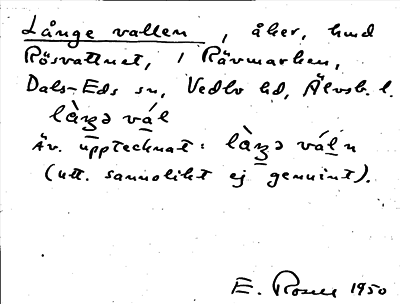 Långe vallen, åker, hmd
Rösvattnet, i Rävmarken,
Dals-Eds sn, Vedbo hd, Älvsb. l.
làŋə vál
Äv. upptecknat: làŋə váln
(utt. sannolikt ej genuint).
E. Rosell 1950